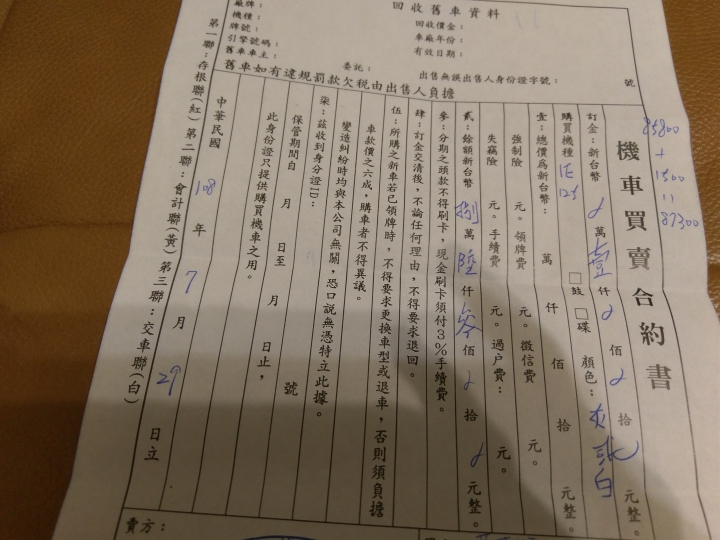 回收舊車資料
廠牌：
機種：
牌號：
引擎號碼：
舊車車主：
回收價金：
車廠年份：
有效日期：
委託：
出售無誤出售人身份證字號：
號
舊車如有違規罰款欠稅由出售人負擔
85800
+
1500
11
87300
機車買賣合約書
訂金：新台幣 萬壹仟 佰 拾 元整。
購買機種 125 □鼓 □碟 顏色：
壹：總價為新台幣： 萬 仟 佰 拾 元整。
強制險 元。領牌費 元。徵信費 元。
失竊險 元。手續費 元。過戶費： 元。
貳：餘額新台幣 捌萬陸仟參佰 拾 元整。
參：分期之頭款不得刷卡，現金刷卡須付3%手續費。
肆：訂金交清後，不論任何理由，不得要求退回。
伍：所購之新車若已領牌時，不得要求更換車型或退車，否則須負擔
車款價之六成，購車者不得異議。
變造糾紛時均與本公司無關，恐口說無憑特立此據。
柒：茲收到身分證ID： 號
保管期間自 月 日至 月 日止，
此身份證只提供購買機車之用。
中華民國 108 年 7 月 29 日立
第一聯：存根聯(紅) 第二聯：會計聯(黃) 第三聯：交車聯(白)
賣方：